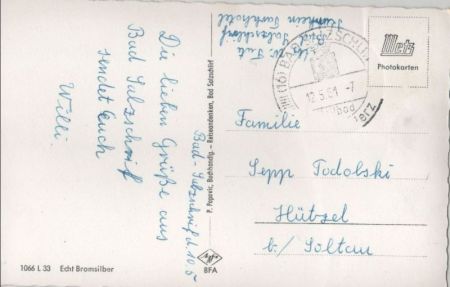 Die lieben Grüße aus
Bad Salzschlirf
sendet Euch
Willi
Bad-Salzschlirf d. 10.5.
P. Paparic, Buchhandlg. – Reiseandenken, Bad Salzschlirf
Bad Salzschlirf
(16) BAD SALZSCHLIRF
12.5.61.-7
Metz
Photokarten
Familie
Sepp Podolski
Hützel
b/ Soltau
1066 L 33 Echt Bromsilber
Agfa
BFA